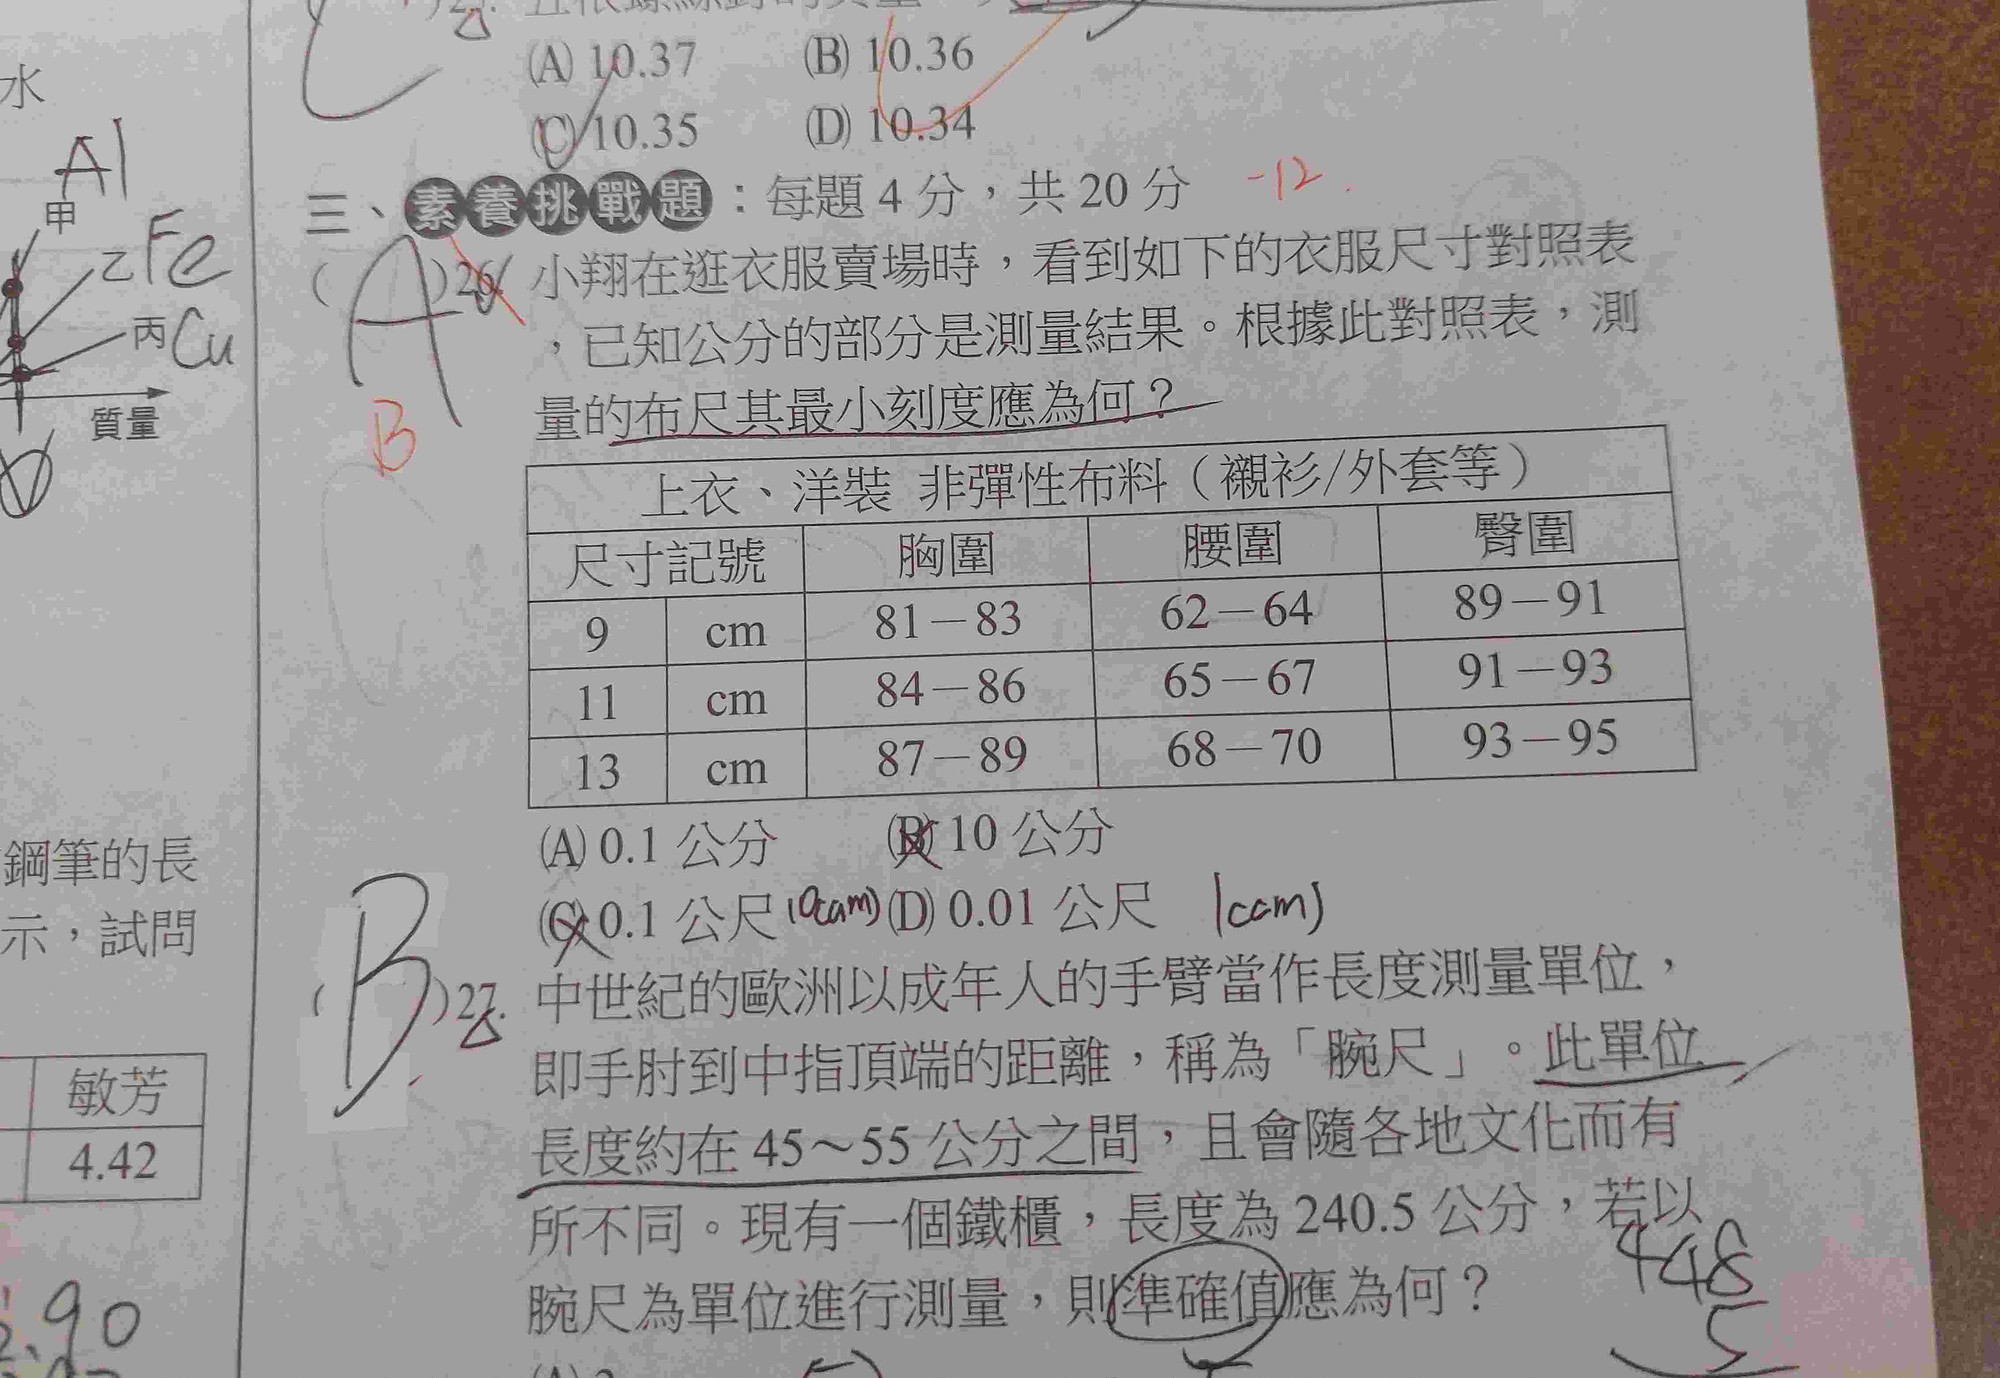 (A) 10.37 (B) 10.36
(C) 10.35 (D) 10.34
三、素養挑戰題：每題 4 分，共 20 分 -12
( A )26. 小翔在逛衣服賣場時，看到如下的衣服尺寸對照表
，已知公分的部分是測量結果。根據此對照表，測
B
量的布尺其最小刻度應為何？
上衣、洋裝 非彈性布料（襯衫/外套等）
尺寸記號 胸圍 腰圍 臀圍
9 cm 81－83 62－64 89－91
11 cm 84－86 65－67 91－93
13 cm 87－89 68－70 93－95
(A) 0.1 公分 (B) 10 公分
(C) 0.1 公尺 10(cm) (D) 0.01 公尺 1(cm)
( B )27. 中世紀的歐洲以成年人的手臂當作長度測量單位，
即手肘到中指頂端的距離，稱為「腕尺」。此單位
長度約在 45～55 公分之間，且會隨各地文化而有
所不同。現有一個鐵櫃，長度為 240.5 公分，若以
腕尺為單位進行測量，則準確值應為何？
448
5
水
Al
甲
乙 Fe
丙 Cu
質量
鋼筆的長
示，試問
敏芳
4.42
.90